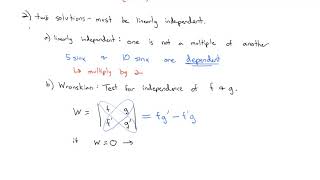 2) two solutions - must be linearly independent.
a) linearly independent: one is not a multiple of another
5 sinx & 10 sinx are dependent
↳ multiply by 2
b) Wronskian: Test for independence of f & g.
W = | f g | = fg' - f'g
| f' g' |
if W=0 →